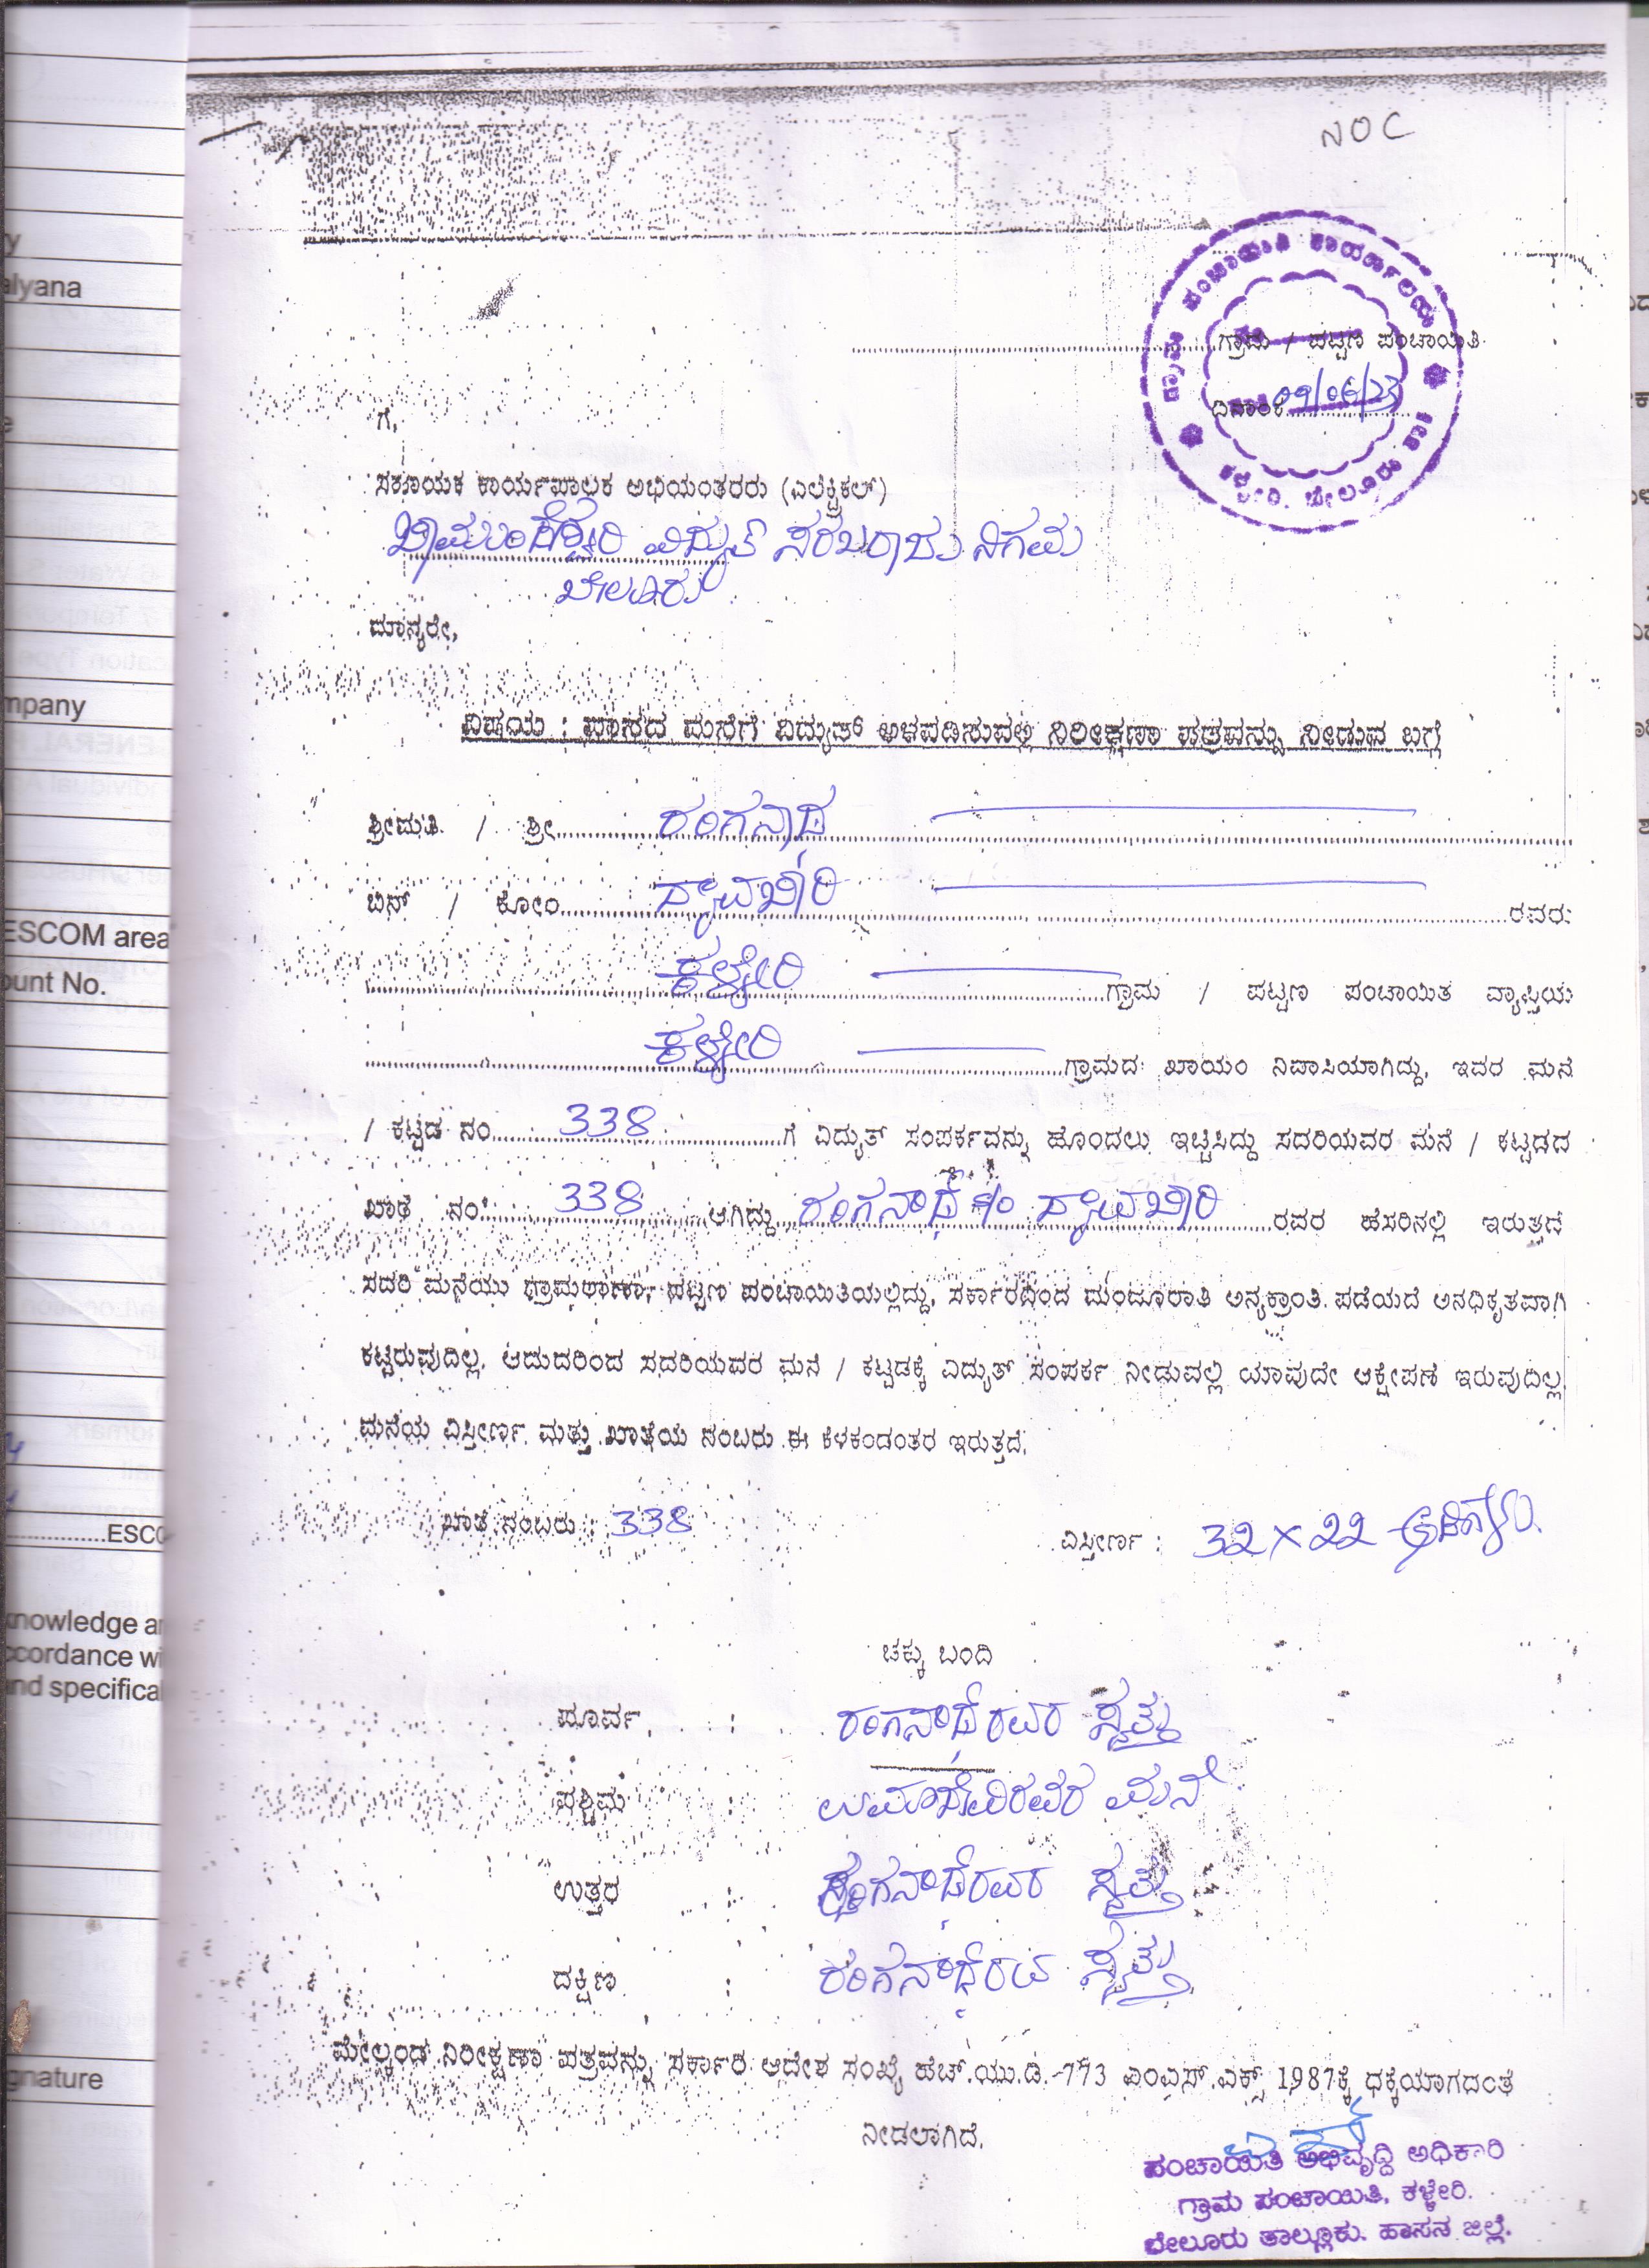 NOC
ಗ್ರಾಮ ಪಂಚಾಯಿತಿ ಕಾರ್ಯಾಲಯ
ಕಳ್ಳೇರಿ. ಬೇಲೂರು
ಗ್ರಾಮ / ಪಟ್ಟಣ ಪಂಚಾಯಿತಿ
ದಿನಾಂಕ 09/06/23
ಗೆ,
ಸಹಾಯಕ ಕಾರ್ಯಪಾಲಕ ಅಭಿಯಂತರರು (ಎಲೆಕ್ಟ್ರಿಕಲ್)
ವಿದ್ಯುತ್ ಸರಬರಾಜು ನಿಗಮ
ಬೇಲೂರು
ಮಾನ್ಯರೇ,
ವಿಷಯ : ವಾಸದ ಮನೆಗೆ ವಿದ್ಯುತ್ ಅಳವಡಿಸುವಲ್ಲಿ ನಿರೀಕ್ಷಣಾ ಪತ್ರವನ್ನು ನೀಡುವ ಬಗ್ಗೆ
ಶ್ರೀಮತಿ / ಶ್ರೀ ರಂಗನಾಥ
ಬಿನ್ / ಕೋಂ ರವರು
ಕಳ್ಳೇರಿ ಗ್ರಾಮ / ಪಟ್ಟಣ ಪಂಚಾಯಿತಿ ವ್ಯಾಪ್ತಿಯ
ಕಳ್ಳೇರಿ ಗ್ರಾಮದ ಖಾಯಂ ನಿವಾಸಿಯಾಗಿದ್ದು, ಇವರ ಮನೆ
/ ಕಟ್ಟಡ ನಂ 338 ಗೆ ವಿದ್ಯುತ್ ಸಂಪರ್ಕವನ್ನು ಹೊಂದಲು ಇಚ್ಚಿಸಿದ್ದು ಸದರಿಯವರ ಮನೆ / ಕಟ್ಟಡದ
ಖಾತೆ ನಂ 338 ಆಗಿದ್ದು ರಂಗನಾಥ ರವರ ಹೆಸರಿನಲ್ಲಿ ಇರುತ್ತದೆ
ಸದರಿ ಮನೆಯು ಗ್ರಾಮಠಾಣಾ, ಪಟ್ಟಣ ಪಂಚಾಯಿತಿಯಲ್ಲಿದ್ದು, ಸರ್ಕಾರದಿಂದ ಮಂಜೂರಾತಿ ಅನ್ಯಕ್ರಾಂತಿ ಪಡೆಯದೆ ಅನಧಿಕೃತವಾಗಿ
ಕಟ್ಟಿರುವುದಿಲ್ಲ. ಆದುದರಿಂದ ಸದರಿಯವರ ಮನೆ / ಕಟ್ಟಡಕ್ಕೆ ವಿದ್ಯುತ್ ಸಂಪರ್ಕ ನೀಡುವಲ್ಲಿ ಯಾವುದೇ ಆಕ್ಷೇಪಣೆ ಇರುವುದಿಲ್ಲ.
ಮನೆಯ ವಿಸ್ತೀರ್ಣ ಮತ್ತು ಖಾತೆಯ ನಂಬರು ಈ ಕೆಳಕಂಡಂತರ ಇರುತ್ತದೆ.
ಖಾತೆ ನಂಬರು : 338 ವಿಸ್ತೀರ್ಣ : 32 × 22 ಅಡಿಗಳು.
ಚಕ್ಕು ಬಂದಿ
ಪೂರ್ವ : ರಂಗನಾಥರವರ ಸ್ವತ್ತು
ಪಶ್ಚಿಮ : ಮನೆ
ಉತ್ತರ : ರಂಗನಾಥರವರ ಸ್ವತ್ತು
ದಕ್ಷಿಣ : ರಂಗನಾಥರವ ಸ್ವತ್ತು
ಮೇಲ್ಕಂಡ ನಿರೀಕ್ಷಣಾ ಪತ್ರವನ್ನು ಸರ್ಕಾರಿ ಆದೇಶ ಸಂಖ್ಯೆ ಹೆಚ್.ಯು.ಡಿ.-773 ಎಂಎಸ್.ಎಕ್ಸ್ 1987ಕ್ಕೆ ಧಕ್ಕೆಯಾಗದಂತೆ
ನೀಡಲಾಗಿದೆ.
ಪಂಚಾಯಿತಿ ಅಭಿವೃದ್ಧಿ ಅಧಿಕಾರಿ
ಗ್ರಾಮ ಪಂಚಾಯಿತಿ, ಕಳ್ಳೇರಿ.
ಬೇಲೂರು ತಾಲ್ಲೂಕು. ಹಾಸನ ಜಿಲ್ಲೆ.
alyana
mpany
ESCOM area
ount No.
ESCO
knowledge a
ccordance wi
nd specifica
gnature